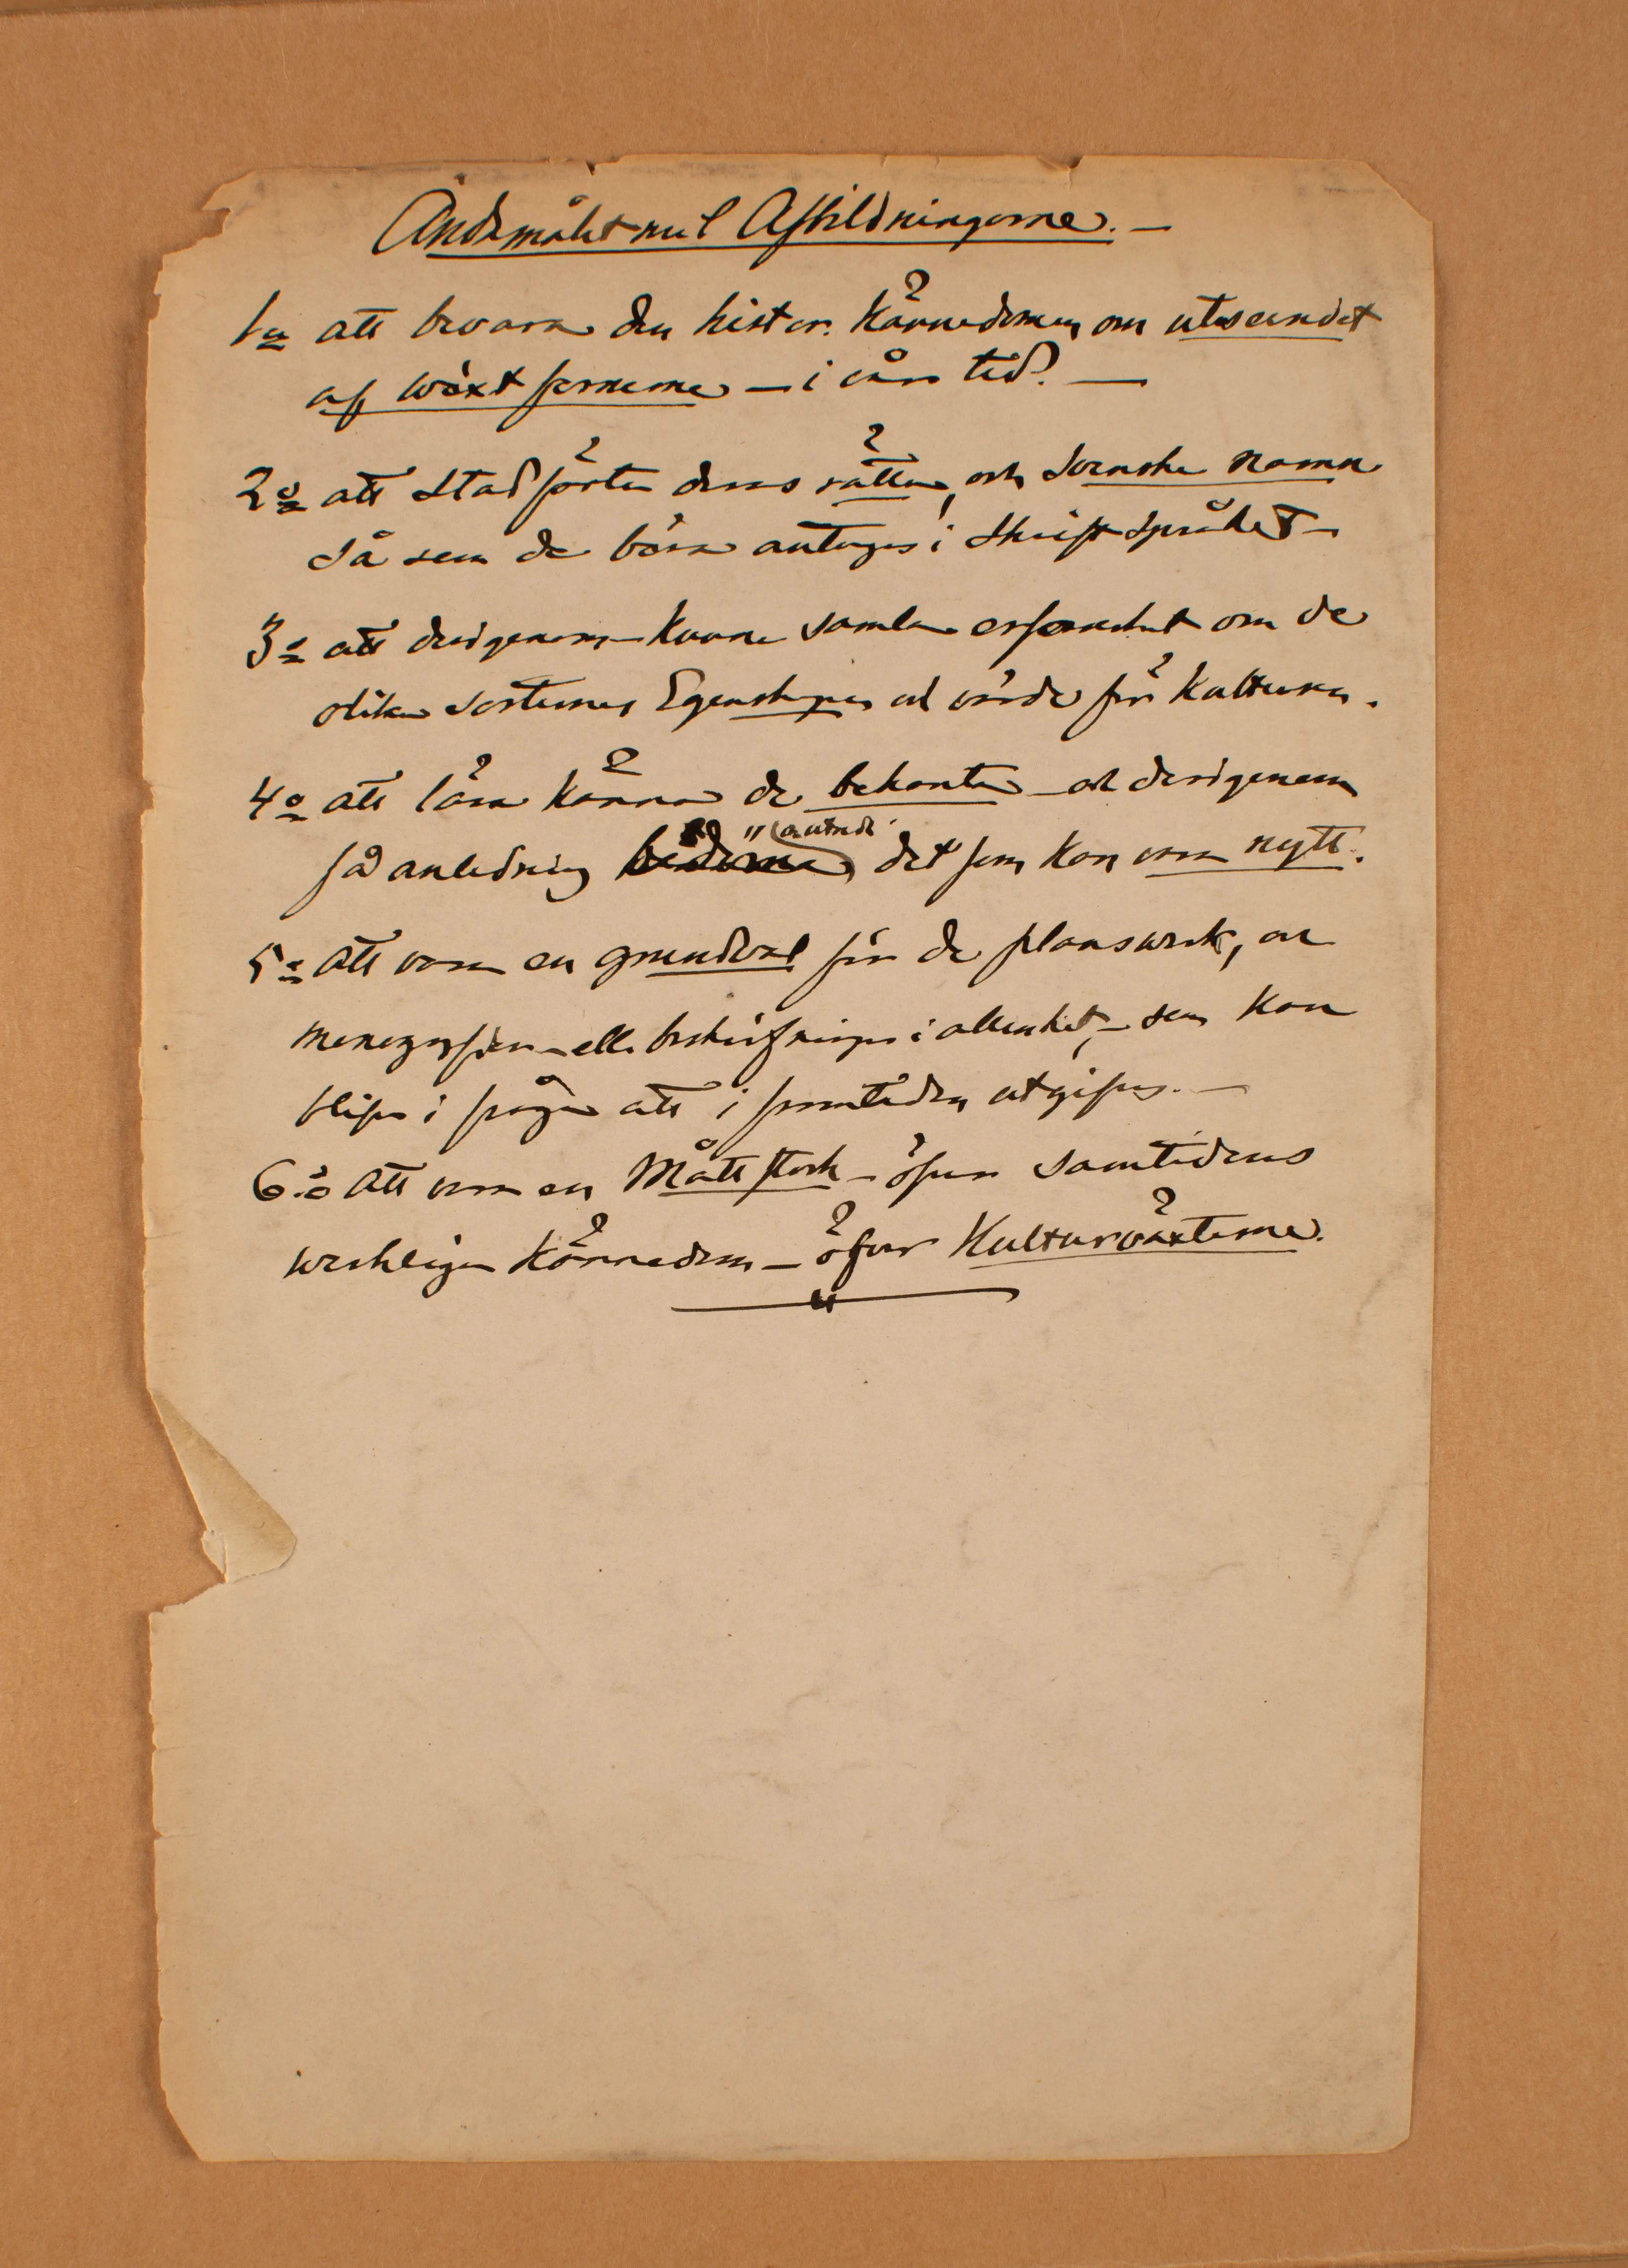 Ändamålet med Afbildningarne. —
1o att bevara den histor. kännedomen om utseendet
af växtformerne — i vår tid. —
2o att stadfästa deras rätta, och Svenska namn
så som de böra antagas i Skriftspråket —
3o att derigenom kunna samla erfarenhet om de
olika sorternes Egenskaper och värde för Kulturen.
4o att lära känna de bekanta — och derigenom
få anledning det som kan vara nytt.
5o att vara en grundval för de plansverk,
monografier — eller beskrifningar i allmänhet, — som kan
blifva i fråga att i framtiden utgifvas. —
6o att vara en Måttstock — öfver samtidens
verkliga kännedom — öfver Kulturväxterne.